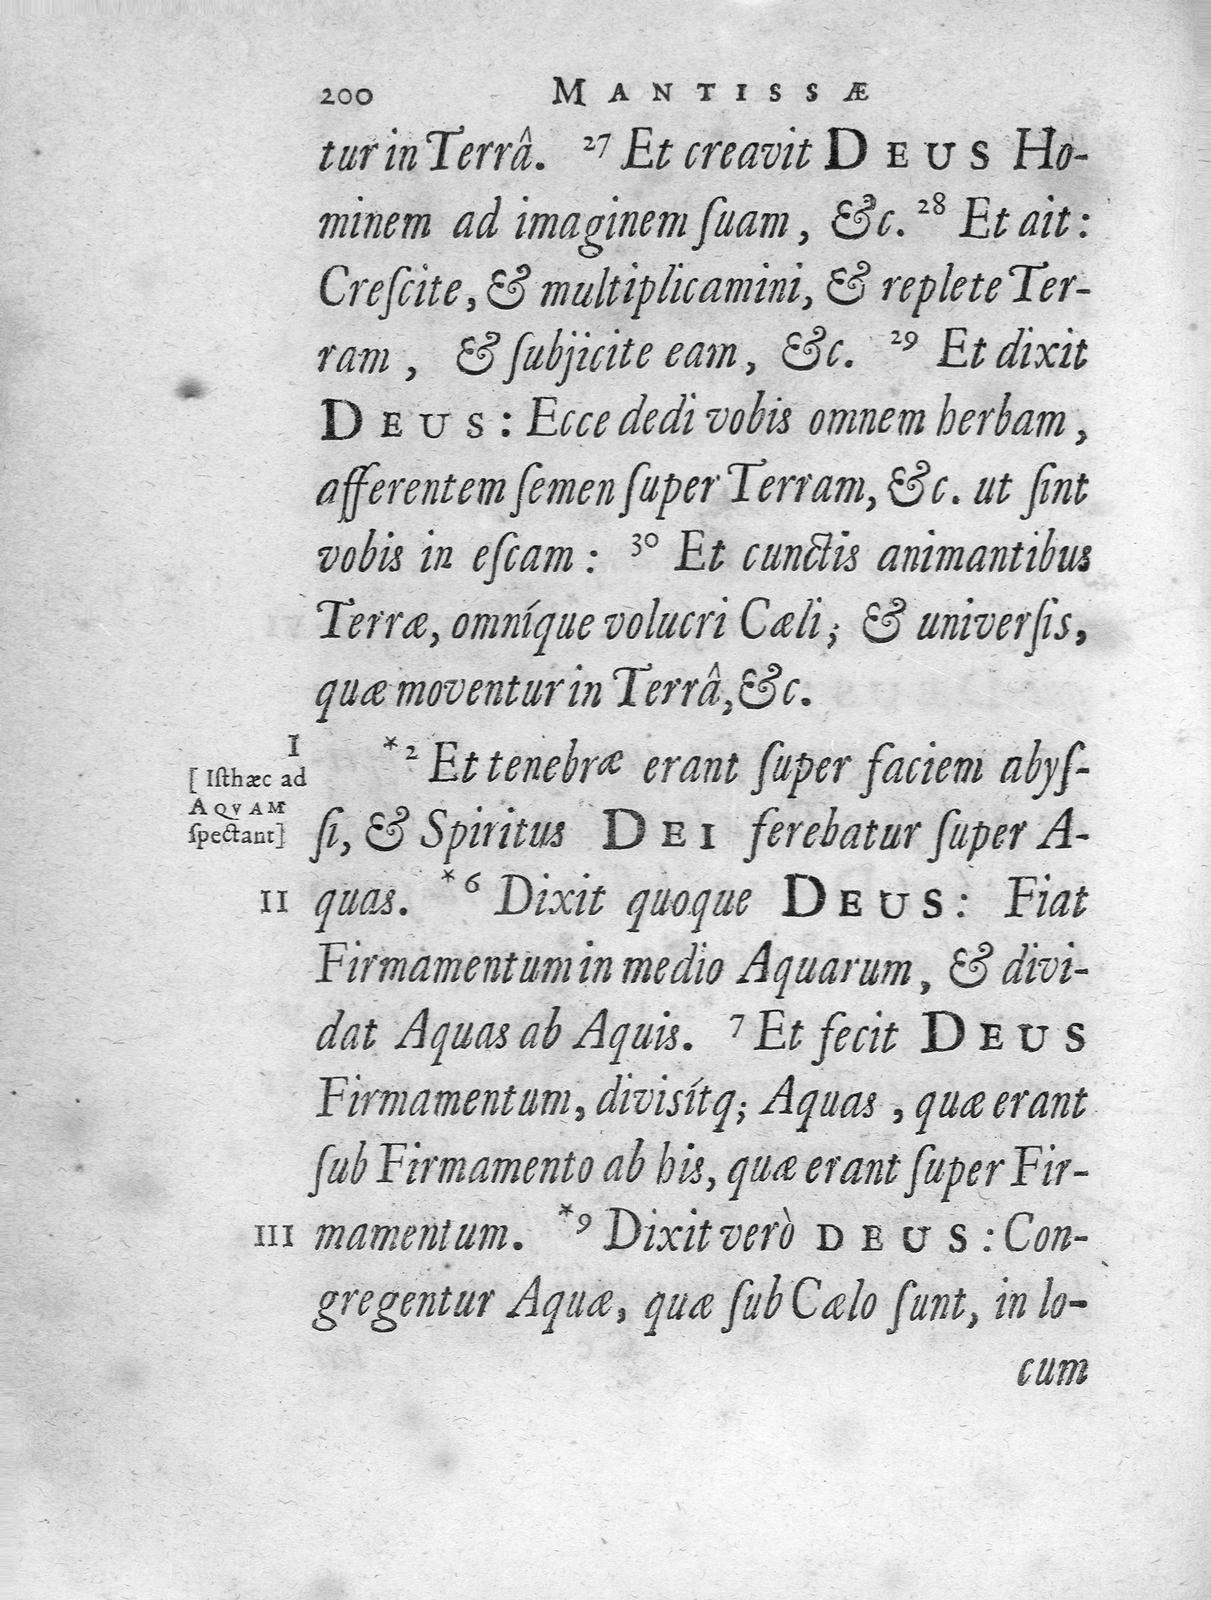 200 MANTISSÆ
tur in Terrâ. 27 Et creavit DEUS Ho-
minem ad imaginem ſuam, &c. 28 Et ait:
Creſcite, & multiplicamini, & replete Ter-
ram, & ſubjicite eam, &c. 29 Et dixit
DEUS: Ecce dedi vobis omnem herbam,
afferentem ſemen ſuper Terram, &c. ut ſint
vobis in eſcam: 30 Et cunctis animantibus
Terræ, omníque volucri Cæli; & univerſis,
quæ moventur in Terrâ, &c.
I *2 Et tenebræ erant ſuper faciem abyſ-
[Iſthæc ad
AQVAM
ſpectant]
ſi, & Spiritus DEI ferebatur ſuper A-
II quas. *6 Dixit quoque DEUS: Fiat
Firmamentum in medio Aquarum, & divi-
dat Aquas ab Aquis. 7 Et fecit DEUS
Firmamentum, divisítq; Aquas, quæ erant
ſub Firmamento ab his, quæ erant ſuper Fir-
III mamentum. *9 Dixit verò DEUS: Con-
gregentur Aquæ, quæ ſub Cælo ſunt, in lo-
cum